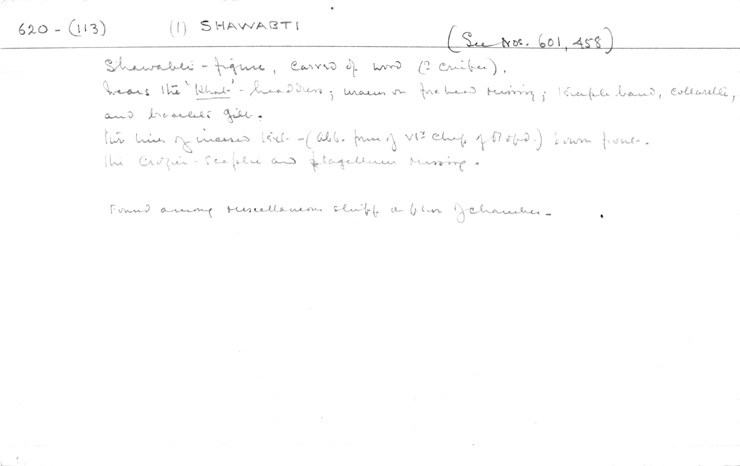 620 - (113) (1) SHAWABTI (See Nos. 601, 458)
Shawabti - figure, carved of wood (? conifer).
Wears the "Khat" - headdress; uraeus on forehead missing; temple band, collarette,
and bracelets gilt.
lines of incised text - (abb. form of VIth Chap. of B. of d.) down front.
The Crozier - sceptre and flagellum missing.
Found among miscellaneous stuff on floor of chamber.